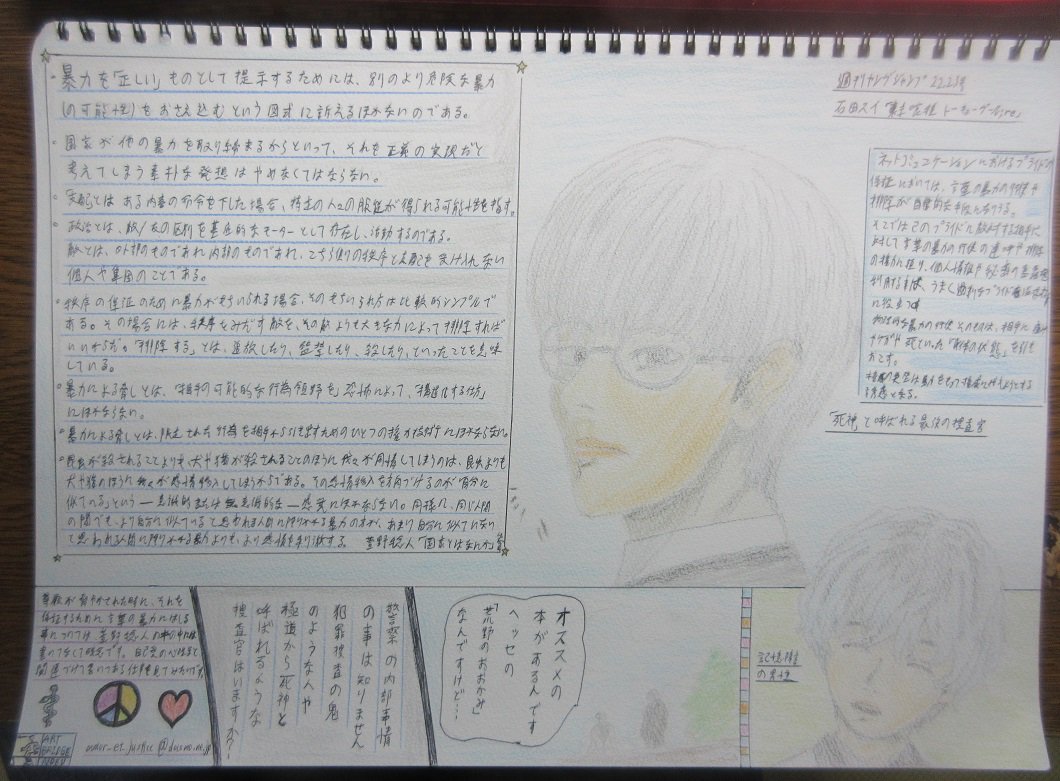 ・暴力を「正しい」ものとして提示するためには、別のより危険な暴力
(の可能性)をおさえ込むという図式に訴えるほかないのである。
・国家が他の暴力を取り締まるからといって、それを正義の実現だと
考えてしまう素朴な発想はやめなくてはならない。
・「支配」とはある内容の命令を下した場合、特定の人々の服従が得られる可能性を指す。
・政治とは、敵/友の区別を基底的なモーターとして存在し、活動するのである。
敵とは、外部のものであれ内部のものであれ、こちら側の秩序と支配を受け入れない
個人や集団のことである。
・秩序の保証のために暴力がもちいられる場合、そのもちいられ方は比較的シンプルで
ある。その場合には、秩序をみだす敵を、その敵よりも大きな力によって排除すれば
いいからだ。「排除する」とは、追放したり、監禁したり、殺したり、といったことを意味
している。
・暴力による脅しとは、「相手の可能的な行為領野を」恐怖によって、「構造化する仕方」
にほかならない。
・暴力による脅しとは、限定された行為を相手から引き出すためのひとつの権力
にほかならない。
・昆虫が殺されることよりも、犬や猫が殺されることのほうに我々が同情してしまうのは、昆虫よりも
犬や猫のほうに我々が感情移入してしまうからである。その感情移入を方向づけるのが「自分に
似ている」という―意識的または無意識的な―感覚にほかならない。同様に、同じ人間
の間でも、より自分に似ていると思われる人間に ふりかかる暴力のほうが、あまり自分に似ていないな
と思われる人間にふりかかる暴力よりも、より感情を刺激する。 萱野稔人「国家とはなにか」
週刊ヤングジャンプ 22.23号
石田スイ「東京喰種 トーキョーグール:re」
ネットコミュニケーションにおけるプライドの
保証においては、言葉の暴力の行使や
排除が
そこでは己のプライドに敵対する相手に
対して言葉の暴力の行使の
個人情報や秘密の
に役立つ
物理的な暴力の行使そのものは、相手に
ケガや死といった「身体の状態」を引き
おこす。
「死神」と呼ばれる最強の捜査官
記憶障害
の男性
尊厳が脅やかされた時に、それを
保証するために言葉の暴力にはしる
事については、萱野稔人の本の中には
書いてなくて残念です。自己愛の心性と
関連づけて書いてある仕事を見てみたいです。
amour_et_justice@docomo.ne.jp
ART
BRIDGE
警察の内部事情
の事は知りません
犯罪捜査の鬼
のような人や
極道から死神と
呼ばれるような
捜査官はいますか?
オススメの
本がある人です
ヘッセの
「荒野のおおかみ」
なんですけど…